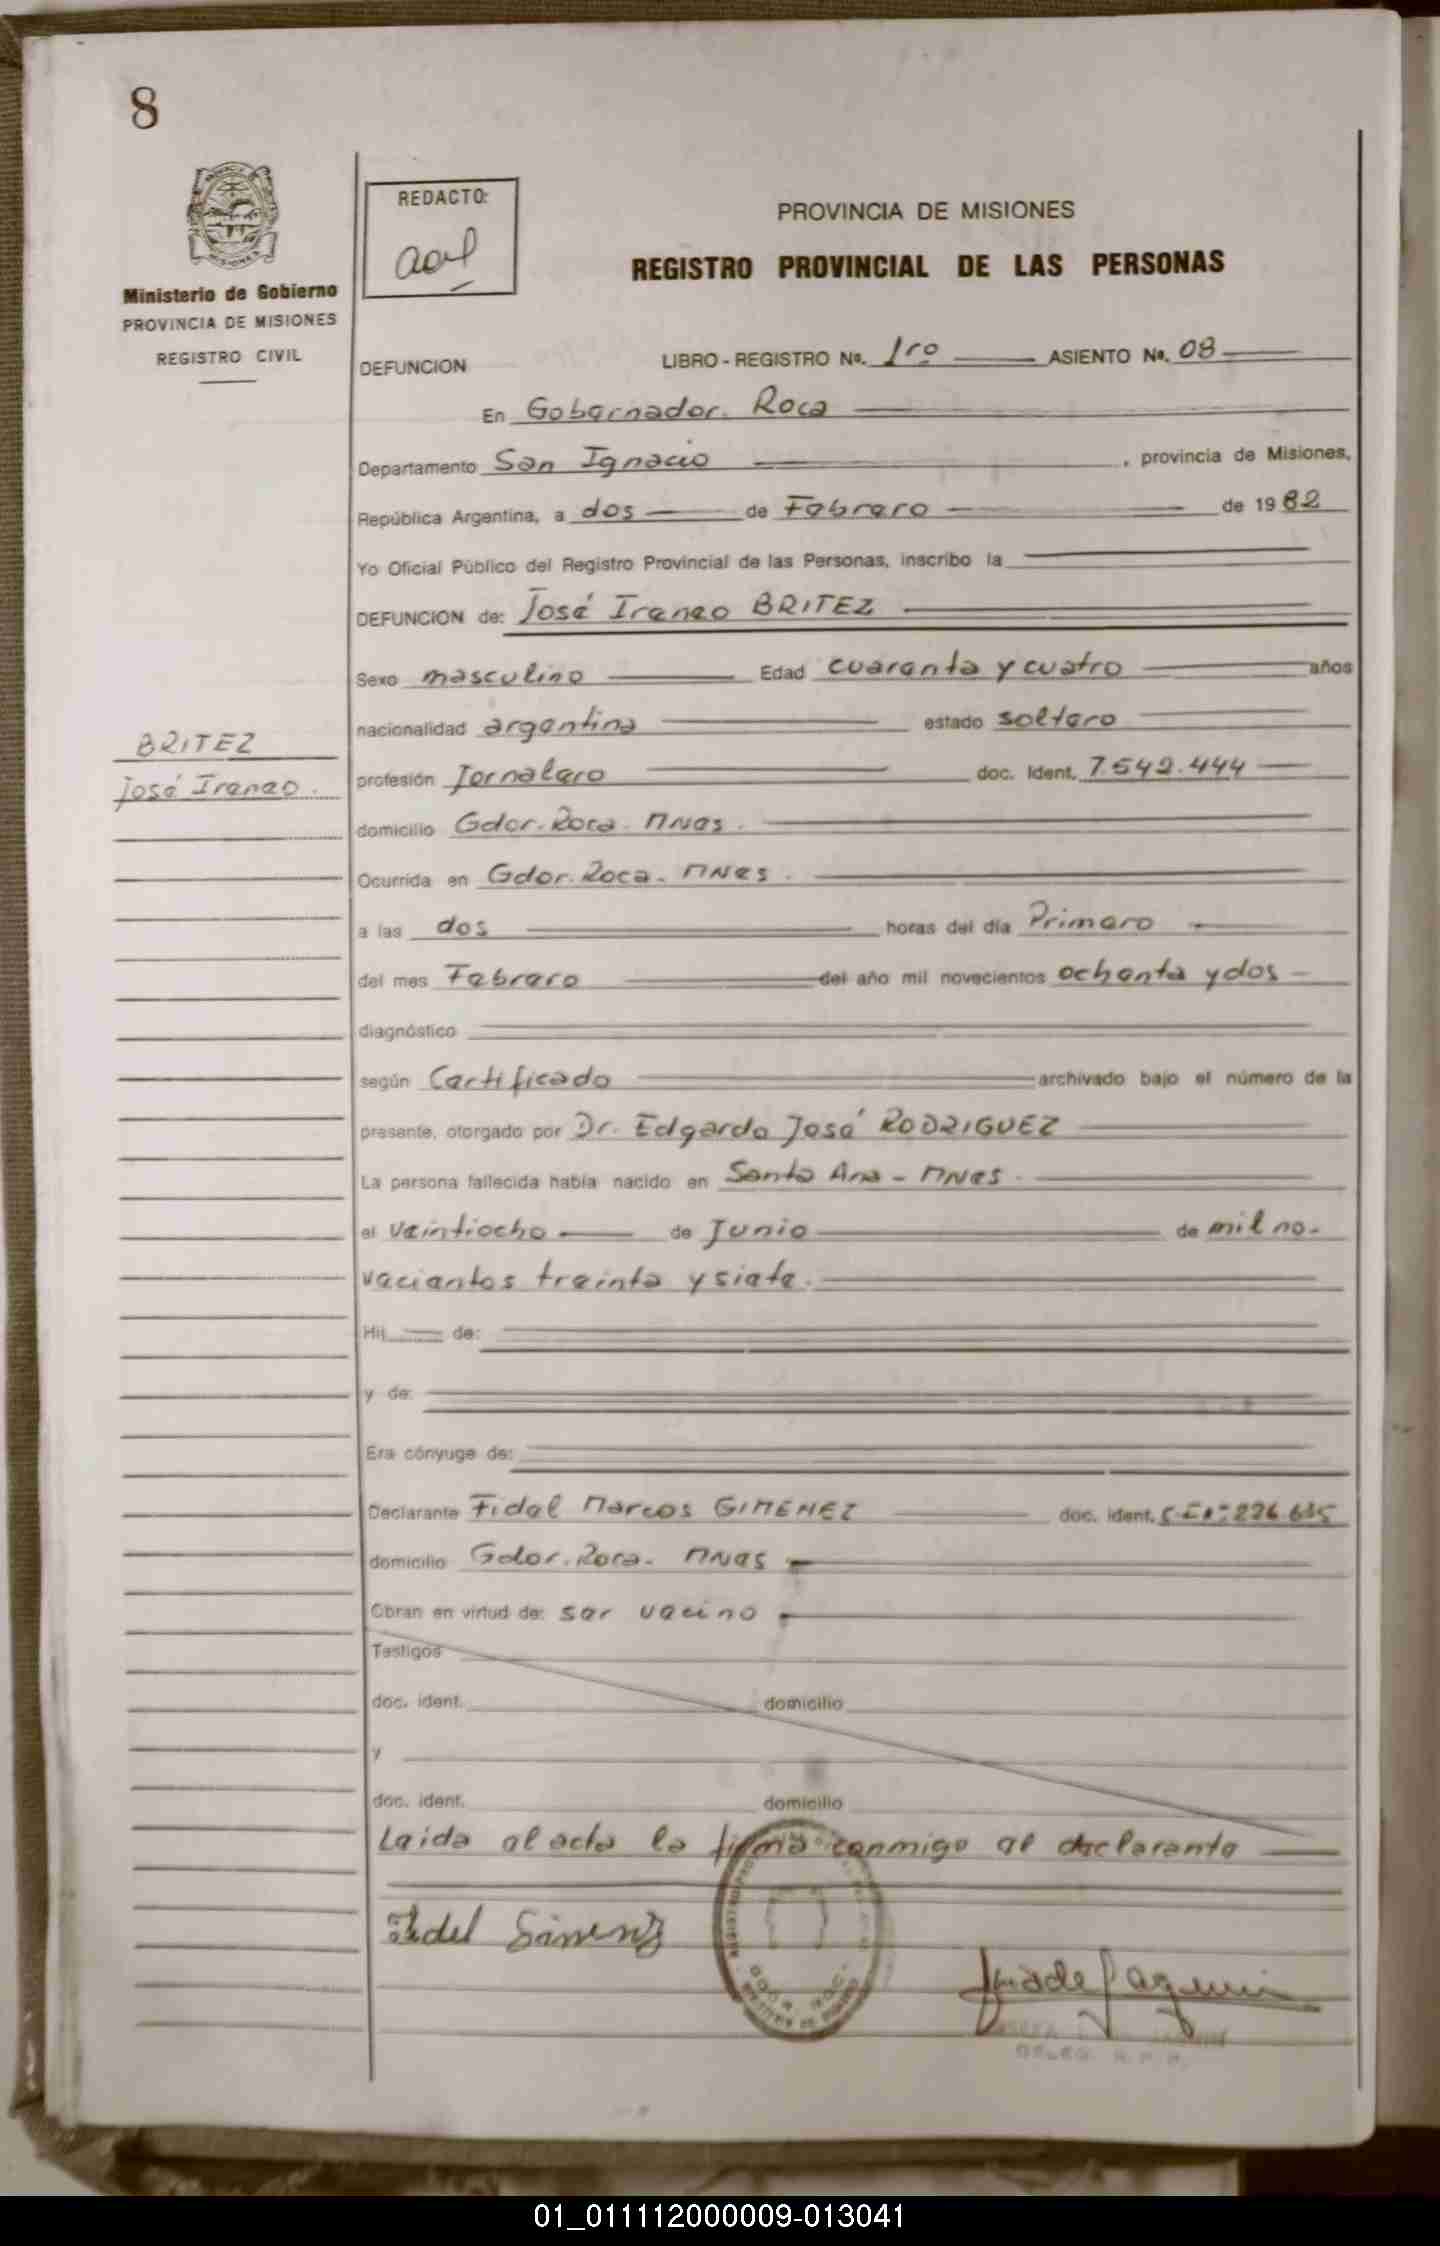 8
REDACTO:
PROVINCIA DE MISIONES
REGISTRO PROVINCIAL DE LAS PERSONAS
Ministerio de Gobierno
PROVINCIA DE MISIONES
REGISTRO CIVIL
DEFUNCION LIBRO - REGISTRO No. 1ro ASIENTO No. 08
En Gobernador Roca
Departamento San Ignacio , provincia de Misiones,
República Argentina, a dos de Febrero de 1982
Yo Oficial Público del Registro Provincial de las Personas, inscribo la
DEFUNCION de: José Ireneo BRITEZ
Sexo masculino Edad cuarenta y cuatro años
nacionalidad argentina estado soltero
BRITEZ
José Ireneo
profesión Jornalero doc. Ident. 7.542.444
domicilio Gdor. Roca. MNes.
Ocurrida en Gdor. Roca. MNes.
a las dos horas del día Primero
del mes Febrero del año mil novecientos ochenta y dos
diagnóstico
según Certificado archivado bajo el número de la
presente, otorgado por Dr. Edgardo José RODRIGUEZ
La persona fallecida había nacido en Santa Ana - MNes.
el veintiocho de Junio de mil no-
vecientos treinta y siete.
Hij de:
y de:
Era cónyuge de:
Declarante Fidel Marcos GIMENEZ doc. ident. 226.635
domicilio Gdor. Roca. MNes
Obran en virtud de: ser vecino
Testigos
doc. ident. domicilio
y
doc. ident. domicilio
Leida el acta la firma conmigo el declarante
Fidel Gimenez
DELEG. R.P.P.
01_011112000009-013041